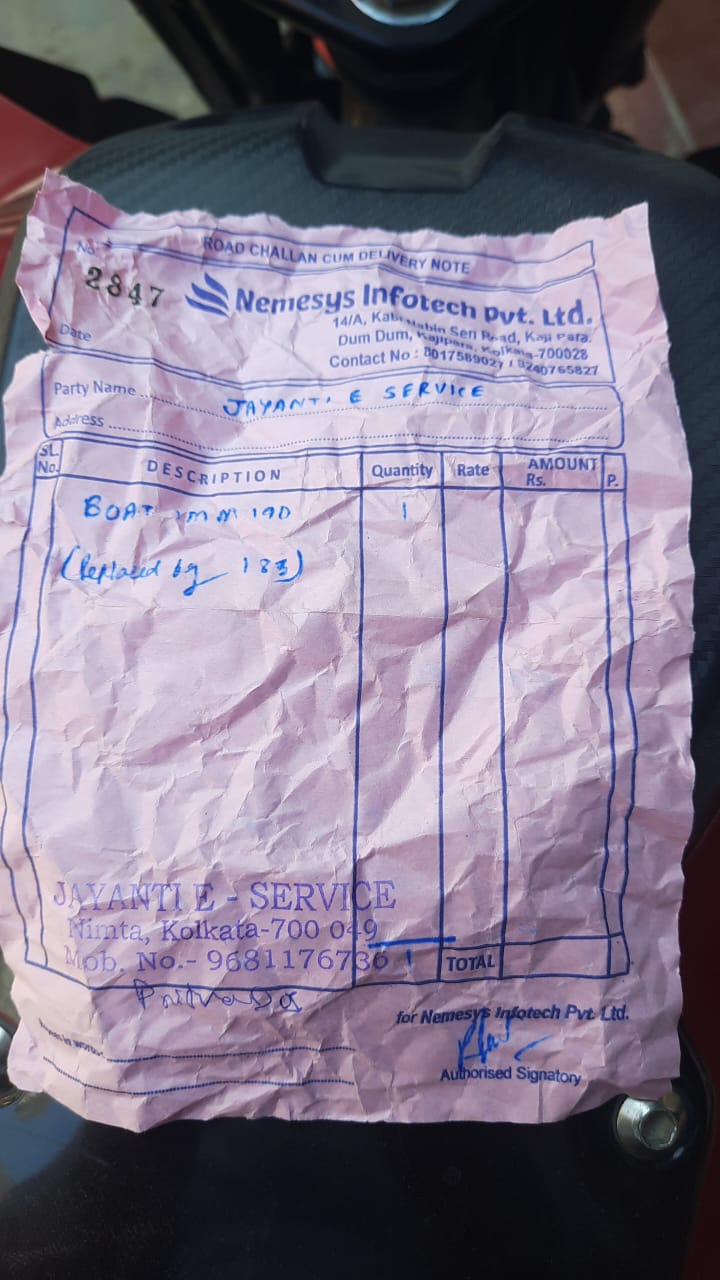 ROAD CHALLAN CUM DELIVERY NOTE
No.
2847
Nemesys Infotech Pvt. Ltd.
14/A, Kabi Nabin Sen Road, Kaji Para.
Dum Dum, Kajipara, Kolkata-700028
Contact No : 8017589027 / 9240765827
Date
Party Name JAYANTI E SERVICE
Address
SL. No. DESCRIPTION Quantity Rate AMOUNT Rs. P.
BOAT 190 1
(Replaced by 183)
JAYANTI E - SERVICE
Nimta, Kolkata-700 049
Mob. No.- 9681176736 1 TOTAL
for Nemesys Infotech Pvt. Ltd.
Authorised Signatory